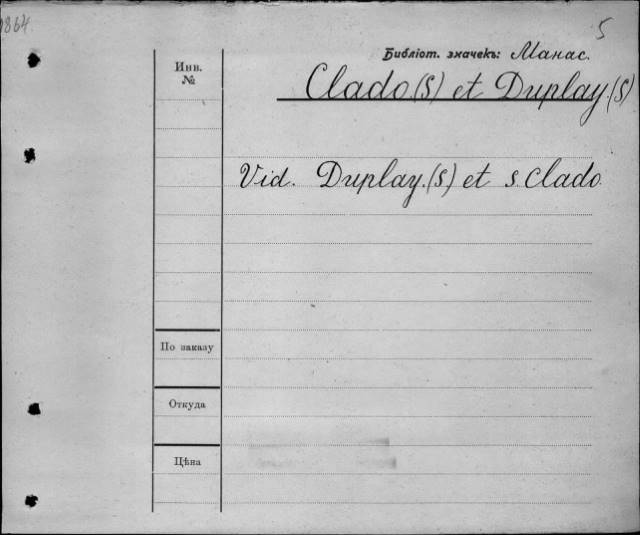 1864.
5
Библіот. значекъ: Манас.
Инв. №
Clado (S) et Duplay (S)
Vid. Duplay. (S) et S. Clado
По заказу
Откуда
Цѣна